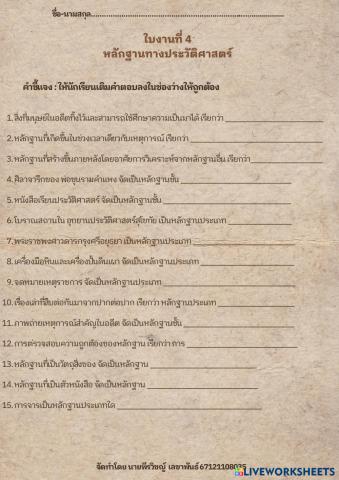 ชื่อ-นามสกุล
ใบงานที่ 4
หลักฐานทางประวัติศาสตร์
คำชี้แจง : ให้นักเรียนเติมคำตอบลงในช่องว่างให้ถูกต้อง
1. สิ่งที่มนุษย์ในอดีตทิ้งไว้และสามารถใช้ศึกษาความเป็นมาได้ เรียกว่า
2. หลักฐานที่เกิดขึ้นในช่วงเวลาเดียวกับเหตุการณ์ เรียกว่า
3. หลักฐานที่สร้างขึ้นภายหลังโดยอาศัยการวิเคราะห์จากหลักฐานอื่น เรียกว่า
4. ศิลาจารึกของ พ่อขุนรามคำแหง จัดเป็นหลักฐานชั้น
5. หนังสือเรียนประวัติศาสตร์ จัดเป็นหลักฐานชั้น
6. โบราณสถานใน อุทยานประวัติศาสตร์สุโขทัย เป็นหลักฐานประเภท
7. พระราชพงศาวดารกรุงศรีอยุธยา เป็นหลักฐานประเภท
8. เครื่องมือหินและเครื่องปั้นดินเผา จัดเป็นหลักฐานประเภท
9. จดหมายเหตุราชการ จัดเป็นหลักฐานประเภท
10. เรื่องเล่าที่สืบต่อกันมาจากปากต่อปาก เรียกว่า หลักฐานประเภท
11. ภาพถ่ายเหตุการณ์สำคัญในอดีต จัดเป็นหลักฐานชั้น
12. การตรวจสอบความถูกต้องของหลักฐาน เรียกว่า การ
13. หลักฐานที่เป็นวัตถุสิ่งของ จัดเป็นหลักฐาน
14. หลักฐานที่เป็นตัวหนังสือ จัดเป็นหลักฐาน
15. การจารเป็นหลักฐานประเภทใด
จัดทำโดย นายพีรวิชญ์ เลขาพันธ์ 67121108035
LIVEWORKSHEETS